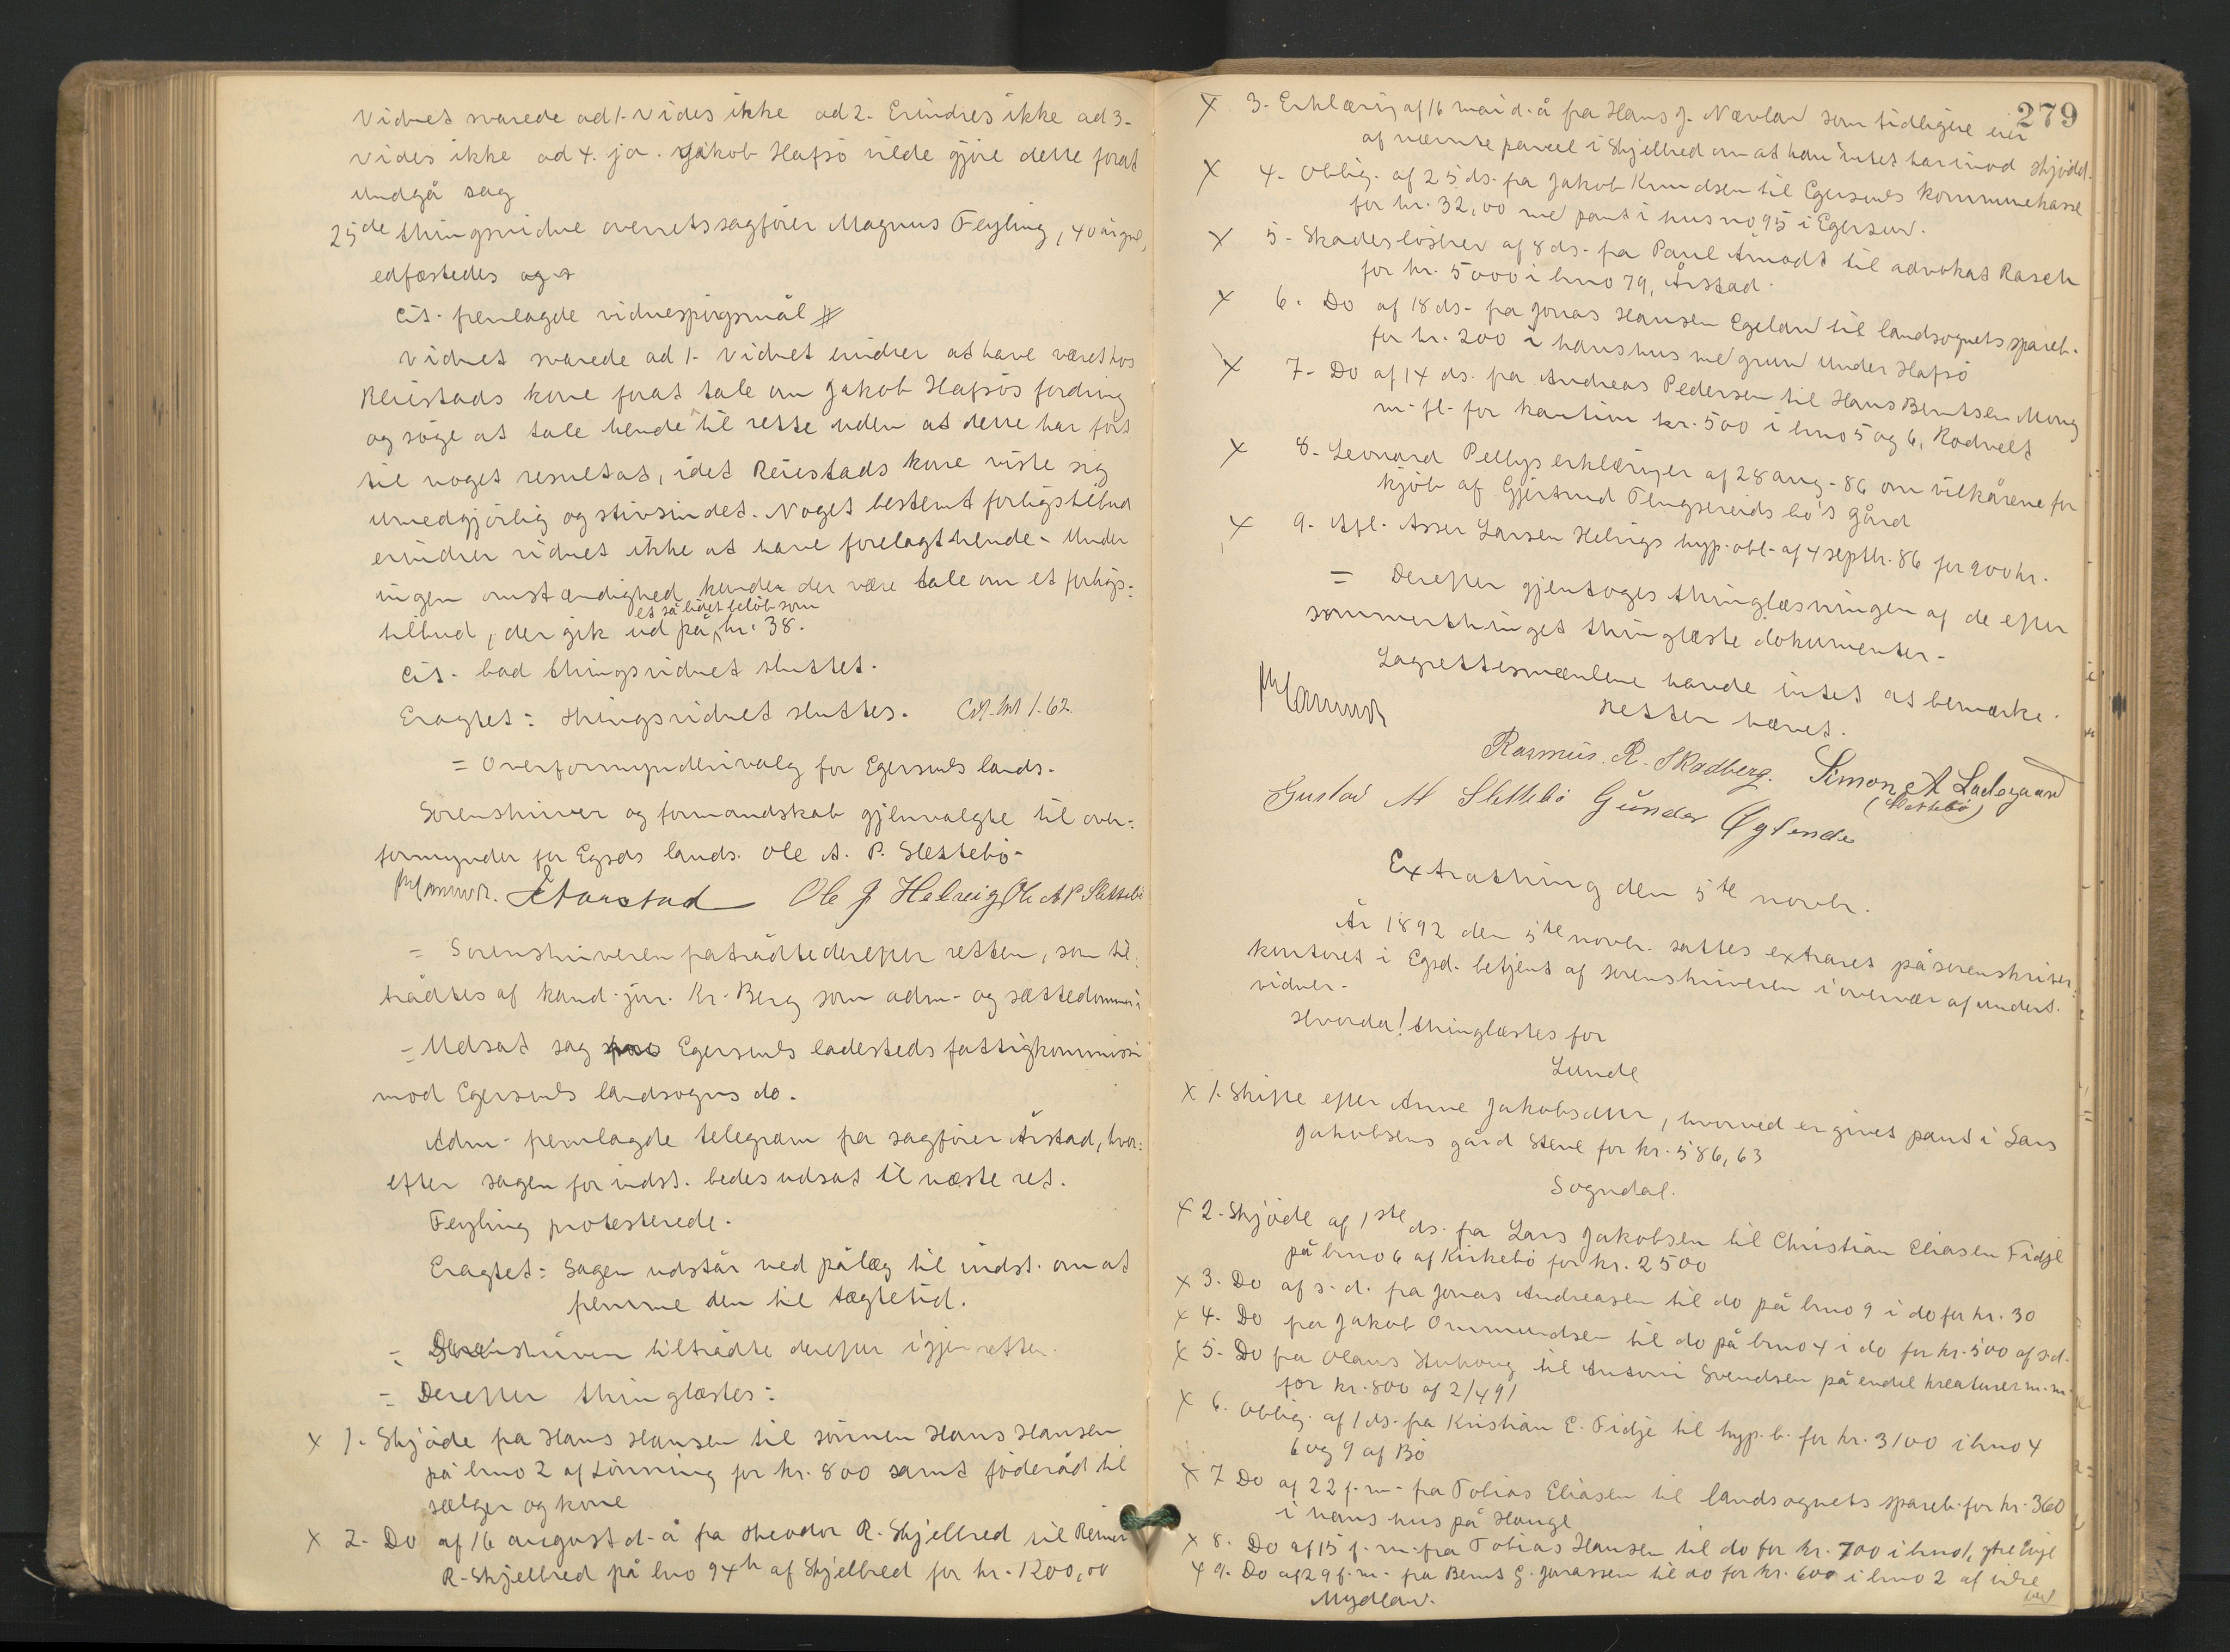 Vidnet svarede ad 1. Vides ikke ad 2. Erindres ikke ad 3.
Vides ikke ad 4. ja. Jakob Hafsö vilde gjöre dette forat
undgå sag
25de thingsvidne overretssagförer Magnus Feyling, 40 år gml,
edfæstedes og
Cit. fremlagde vidnespörgsmål #
Vidnet svarede ad 1. Vidnet erindrer at have været hos
Reiestads kone forat tale om Jakob Hafsös fordring
og söge at tale hende til rette uden at dette har fört
til noget resultat, idet Reiestads kone viste sig
umedgjörlig og stivsindet. Noget bestemt forligstilbud
erindrer vidnet ikke at have forelagt hende. Under
ingen omstændighed kunde der være tale om et forligs-
et så lidet belöb som
tilbud, der gik ud på kr. 38.
Cit. bad thingsvidnet sluttet.
Eragtet: Thingsvidnet sluttes.
= Overformyndervalg for Egersunds lands.
Sorenskriver og formandskab gjenvalgte til over-
formynder for Egsds lands. Ole A. P. Slettebö.
Aarstad Ole J Helvig Ole A P Slettebö
= Sorenskriveren fratrådte derefter retten, som til-
trådtes af kand. jur. Kr. Berg som adm. og sættedommer
= Udsat sag Egersunds ladesteds fattigkommissi
mod Egersunds landsogns do.
Adm. fremlagde telegram fra sagförer Årstad, hvor-
efter sagen for indst. bedes udsat til næste ret.
Feyling protesterede.
Eragtet: Sagen udstår ved pålæg til indst. om at
fremme den til tægtetid.
= Sorenskriveren tiltrådte derefter igjen retten.
= Derefter thinglæstes:
x 1. Skjöde fra Hans Hansen til sönnen Hans Hansen
på brno 2 af Lönning for kr. 800 samt föderåd til
sælger og kone
x 2. Do af 16 august d. å fra Theodor R. Skjelbred til Reimer
R. Skjelbred på bno 94h af Skjelbred for kr. 1200,00
279
x 3. Erklæring af 16 mai d. å fra Hans J. Nævland som tidligere eier
af nævnte parcel i Skjelbred om at han intet har imod skjödet.
x 4. Oblig. af 25 ds. fra Jakob Knudsen til Egersunds kommunekasse
for kr. 32,00 med pant i hus no 95 i Egersund.
x 5. Skadeslösbrev af 8 ds. fra Paul Åmodt til advokat Rasch
for kr. 5000 i brno 79, Årstad.
x 6. Do af 18 ds. fra Jonas Hansen Egeland til landsognets spareb.
for kr. 200 i hans hus med grund under Hafsö
x 7. Do af 14 ds. fra Andreas Pedersen til Hans Berntsen Mong
m. fl. for kaution kr. 500 i brno 5 og 6, Rodvelt
x 8. Leonard Pellys erklæringer af 28 aug. 86 om vilkårene for
kjöb af Gjertrud Tengsereids bo's gård
x 9. Afl. Asser Larsen Helvigs hyp. obl. af 4 septbr. 86 for 900 kr.
= Derefter gjentoges thinglæsningen af de efter
sommerthinget thinglæste dokumenter.
Lagrettesmændene havde intet at bemærke.
Retten hævet.
Rasmus. R. Skadberg. Simon A Ladegaard
(Slettebö)
Gustav M Slettebö Gunder Öglende
Extrathing den 5te novbr.
År 1892 den 5te novbr. sattes extraret på sorenskriver-
kontoret i Egsd. betjent af sorenskriveren i overvær af undert.
vidner.
Hvorda! thinglæstes for
Lunde
x 1. Skifte efter Anne Jakobsdttr, hvorved er givet pant i Lars
Jakobsens gård Stene for kr. 586,63
Sogndal.
x 2. Skjöde af 1ste ds. fra Lars Jakobsen til Christian Eliasen Fidje
på brno 6 af Kirkebö for kr. 2500
x 3. Do af s. d. fra Jonas Andreasen til do på brno 9 i do for kr. 30
x 4. Do fra Jakob Ommundsen til do på brno 4 i do for kr. 500 af s.d.
x 5. Do fra Olaus Stuhoug til Antoni Svendsen på endel kreaturer m. m.
for kr. 800 af 2/4 91
x 6. Oblig. af 1 ds. fra Kristian E. Fidje til hyp. b. for kr. 3100 i brno 4
6 og 9 af Bö
x 7 Do af 22 f. m. fra Tobias Eliasen til landsognets spareb. for kr. 360
i hans hus på Hauge
x 8. Do af 15 f. m. fra Tobias Hansen til do for kr. 700 i brno 1, ytre
x 9. Do af 29 f. m. fra Bernt G. Jonassen til do for kr. 600 i brno 2 af indre
Mydland.